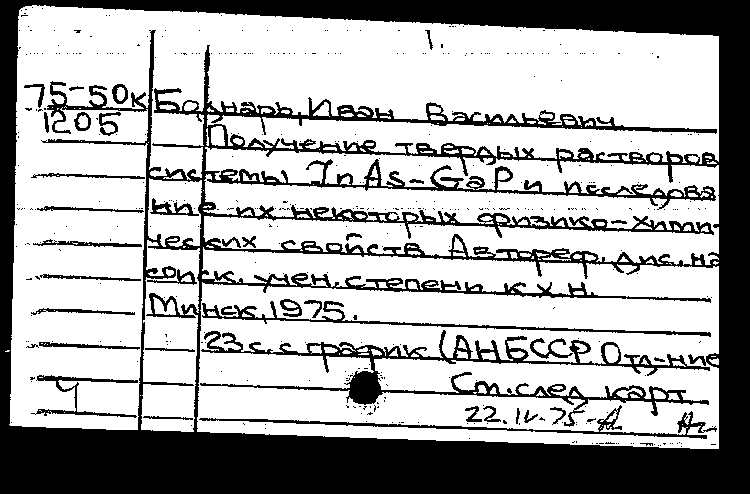 1.
75-50к Боднарь, Иван Васильевич.
1205 Получение твердых растворов
системы InAs-GaP и исследова
ние их некоторых физико-хими-
ческих свойств. Автореф. дис. на
соиск. учен. степени к.х.н.
Минск, 1975.
23 с. с график (АН БССР. Отд-ние
См. след карт.
Ч
22.IV.75